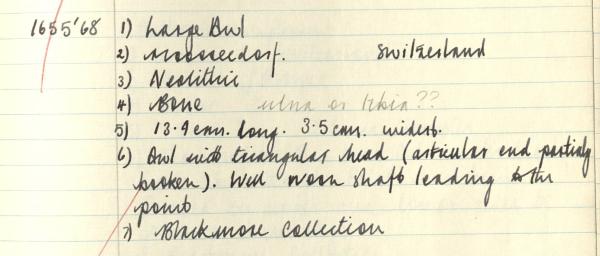 1655'68 1) Large Awl
2) Moosseedorf. Switzerland
3) Neolithic
4) Bone ulna or tibia??
5) 13.9 cms. long. 3.5 cms. widest.
6) Awl with triangular head (articular end partialy
broken). Well worn shaft leading to the
point
7) Blackmore Collection